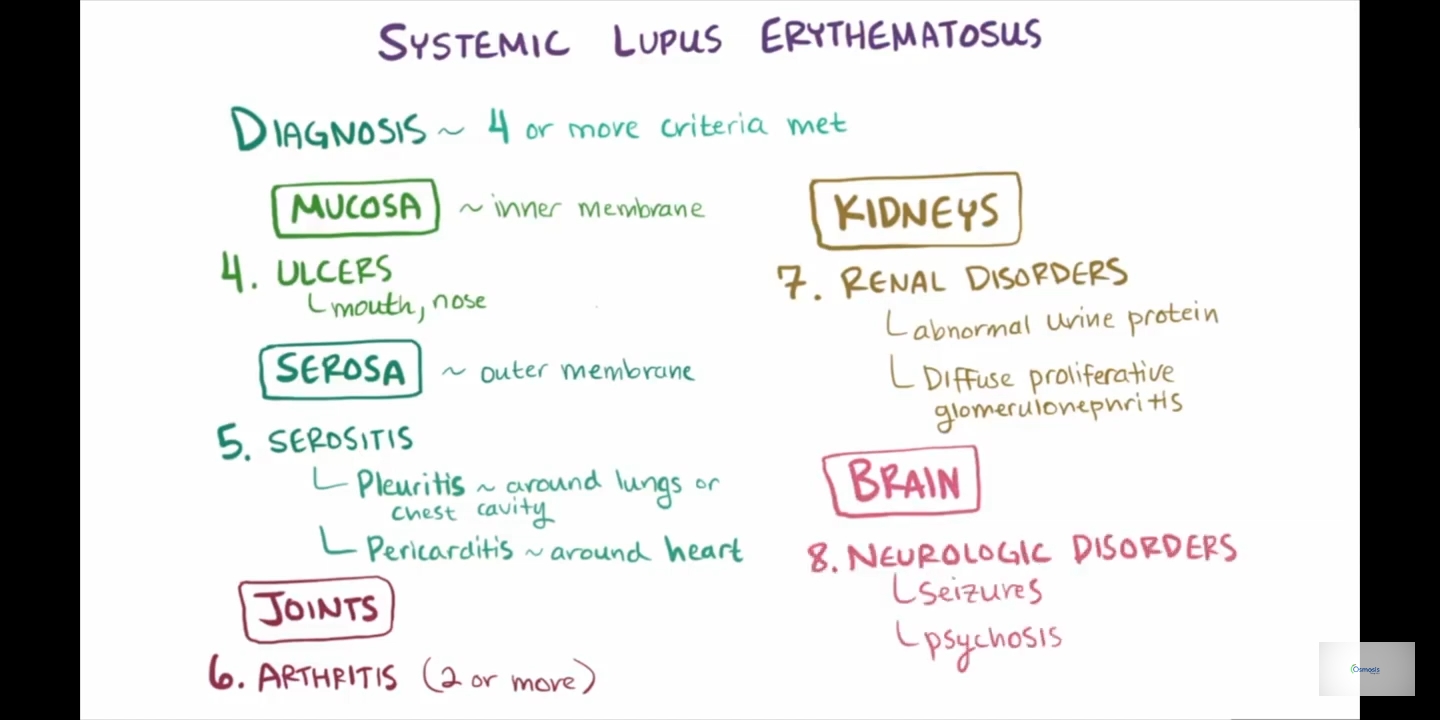 SYSTEMIC LUPUS ERYTHEMATOSUS
DIAGNOSIS ~ 4 or more criteria met
MUCOSA ~ inner membrane
4. ULCERS
mouth, nose
SEROSA ~ outer membrane
5. SEROSITIS
Pleuritis ~ around lungs or
chest cavity
Pericarditis ~ around heart
JOINTS
6. ARTHRITIS (2 or more)
KIDNEYS
7. RENAL DISORDERS
abnormal urine protein
Diffuse proliferative
glomerulonephritis
BRAIN
8. NEUROLOGIC DISORDERS
seizures
psychosis
Osmosis